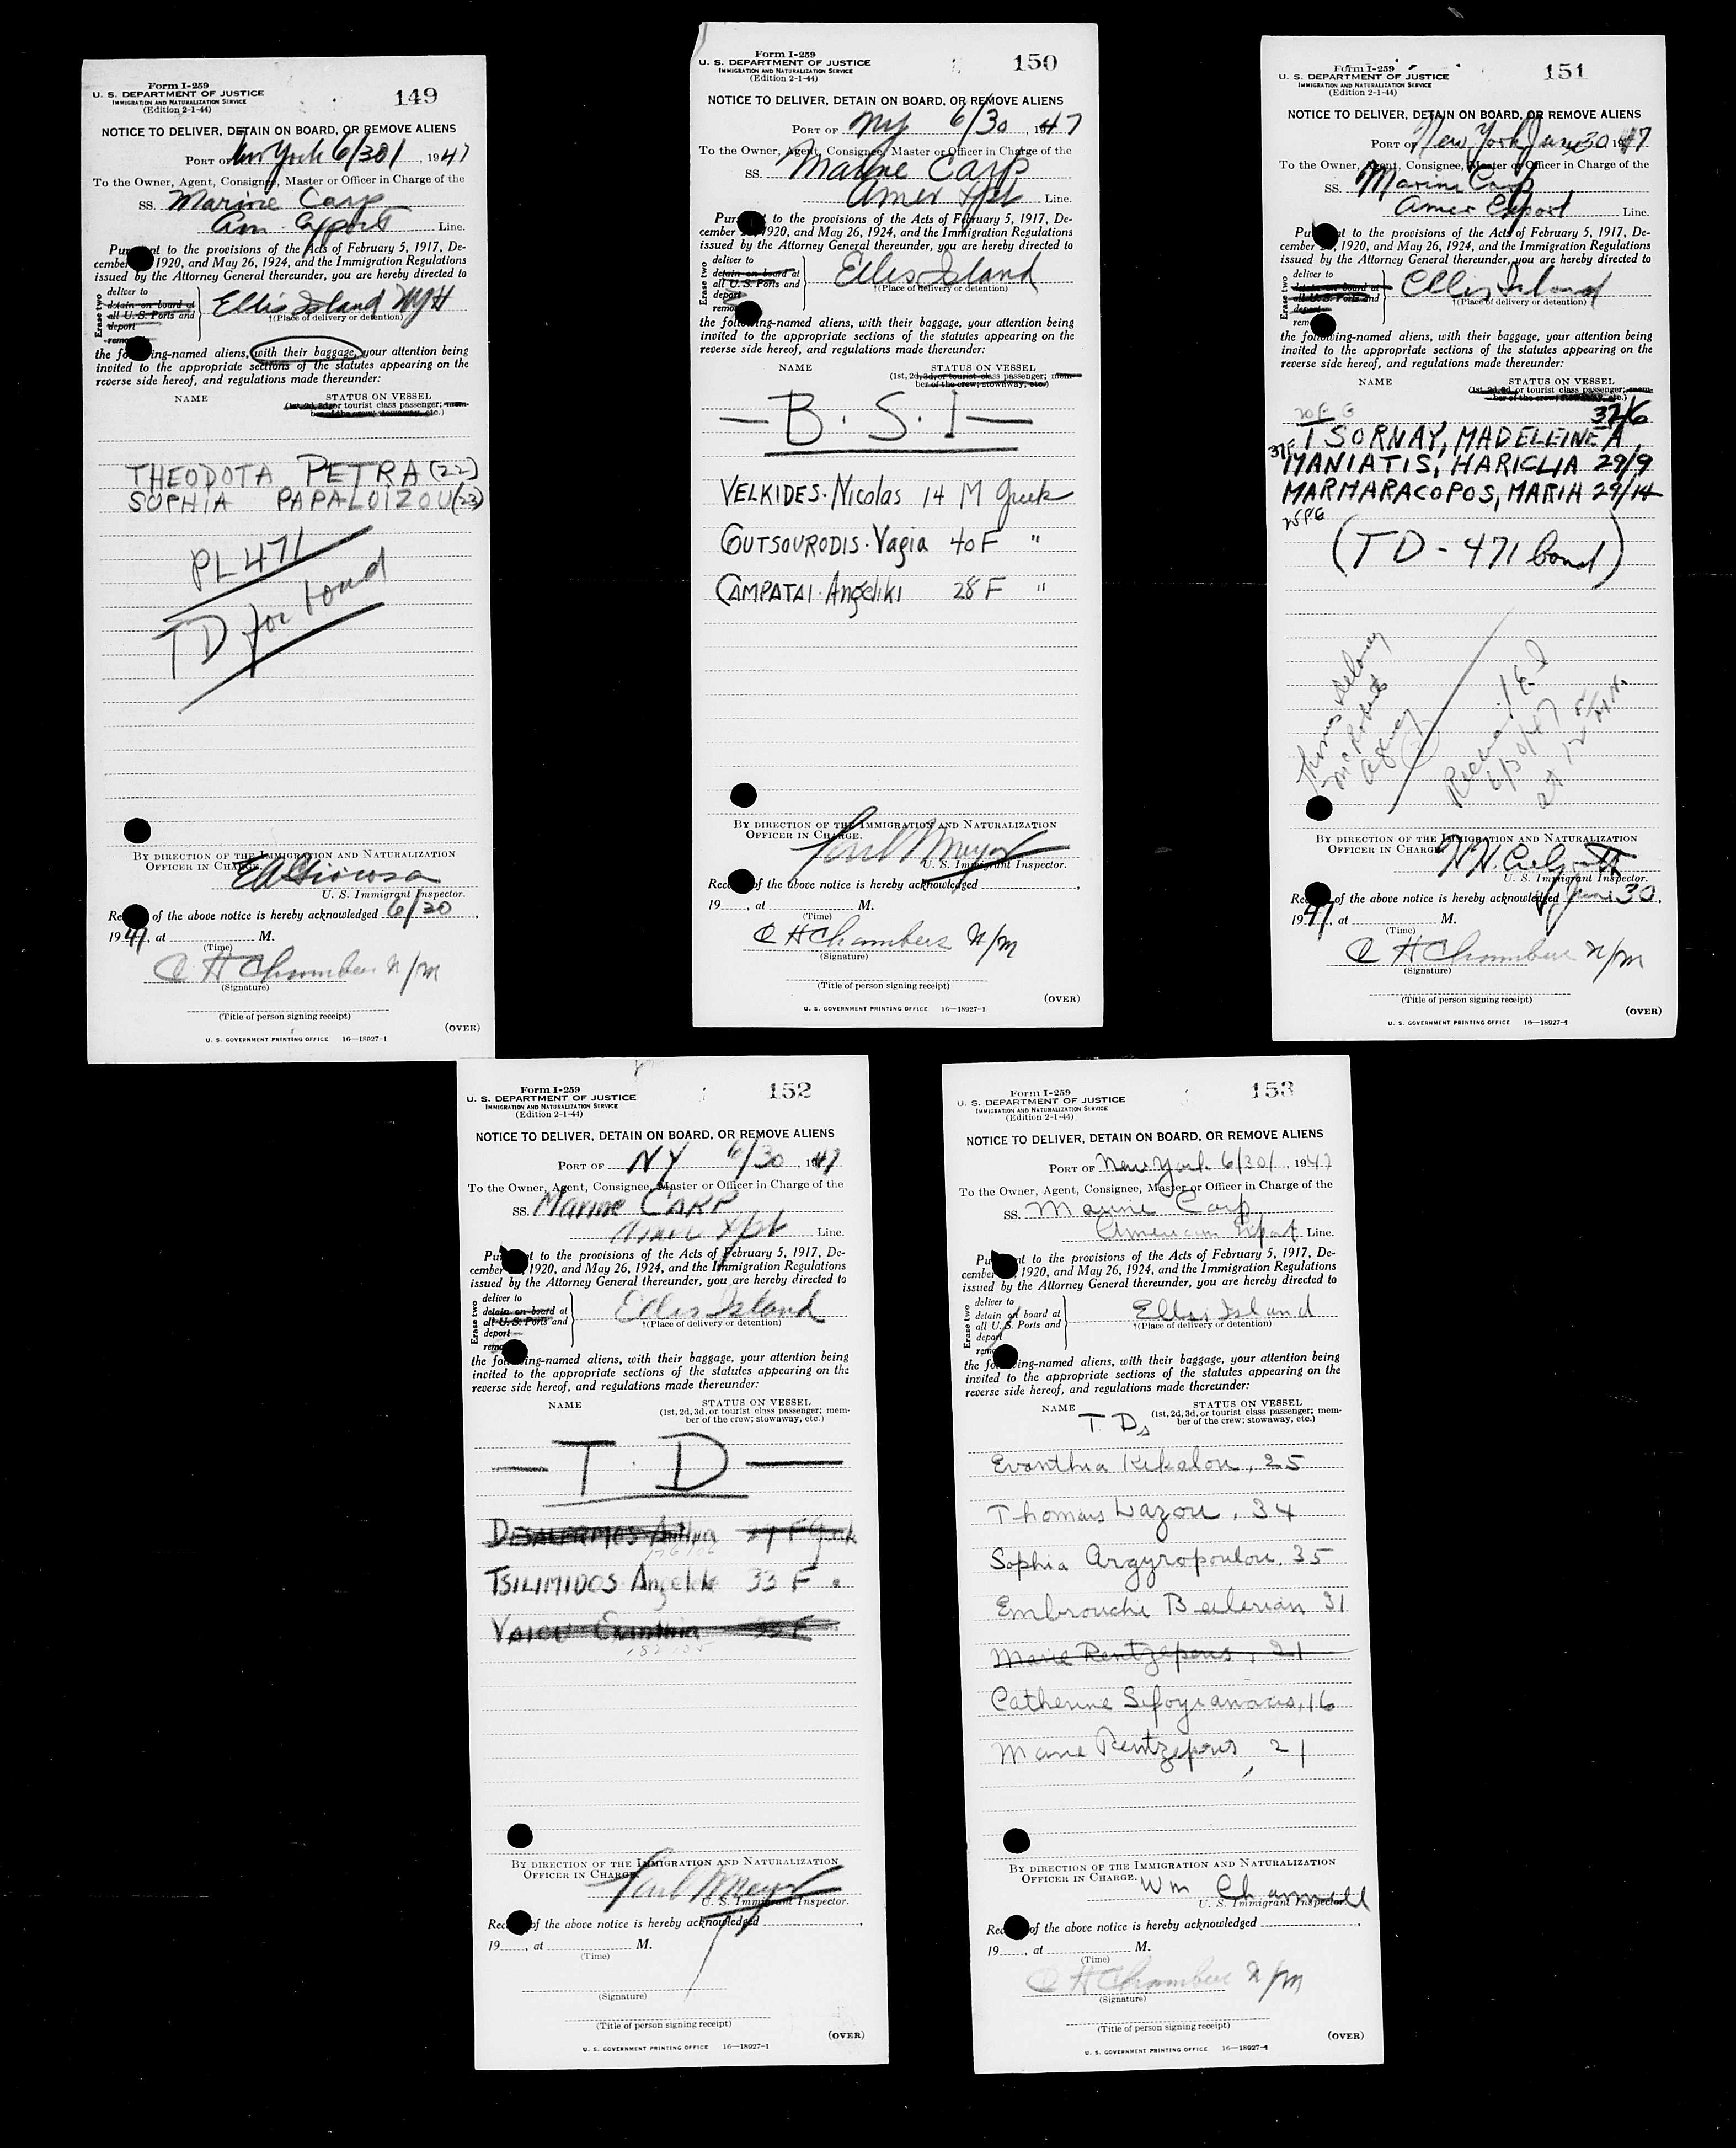 Form I-259
U. S. DEPARTMENT OF JUSTICE
IMMIGRATION AND NATURALIZATION SERVICE
(Edition 2-1-44)
149
NOTICE TO DELIVER, DETAIN ON BOARD, OR REMOVE ALIENS
PORT OF New York 6/30/, 1947
To the Owner, Agent, Consignee, Master or Officer in Charge of the
SS. Marine Carp
Am. Export Line.
Pursuant to the provisions of the Acts of February 5, 1917, De-
cember 1920, and May 26, 1924, and the Immigration Regulations
issued by the Attorney General thereunder, you are hereby directed to
Erase two
deliver to
detain on board at
all U. S. Ports and
deport
remo
Ellis Island NYH
†(Place of delivery or detention)
the following-named aliens, with their baggage, your attention being
invited to the appropriate sections of the statutes appearing on the
reverse side hereof, and regulations made thereunder:
NAME STATUS ON VESSEL
(1st, 2d, 3d, or tourist class passenger; mem-
ber of the crew; stowaway, etc.)
THEODOTA PETRA (22)
SOPHIA PAPALOIZOU (23)
PL 471
TD for bond
BY DIRECTION OF THE IMMIGRATION AND NATURALIZATION
OFFICER IN CHARGE.
U. S. Immigrant Inspector.
Receipt of the above notice is hereby acknowledged 6/30,
1947, at M.
(Time)
C H Chambers
(Signature)
(Title of person signing receipt)
(OVER)
U. S. GOVERNMENT PRINTING OFFICE 16—18927-1
Form I-259
U. S. DEPARTMENT OF JUSTICE
IMMIGRATION AND NATURALIZATION SERVICE
(Edition 2-1-44)
150
NOTICE TO DELIVER, DETAIN ON BOARD, OR REMOVE ALIENS
PORT OF NY 6/30, 1947
To the Owner, Agent, Consignee, Master or Officer in Charge of the
SS. Marine Carp
Amer Xpt Line.
Pursuant to the provisions of the Acts of February 5, 1917, De-
cember 1920, and May 26, 1924, and the Immigration Regulations
issued by the Attorney General thereunder, you are hereby directed to
Erase two
deliver to
detain on board at
all U. S. Ports and
deport
remo
Ellis Island
†(Place of delivery or detention)
the following-named aliens, with their baggage, your attention being
invited to the appropriate sections of the statutes appearing on the
reverse side hereof, and regulations made thereunder:
NAME STATUS ON VESSEL
(1st, 2d, 3d, or tourist class passenger; mem-
ber of the crew; stowaway, etc.)
— B. S. I —
VELKIDES. Nicolas 14 M Greek
GOUTSOURODIS. Vagia 40 F "
CAMPATAI. Angeliki 28 F "
BY DIRECTION OF THE IMMIGRATION AND NATURALIZATION
OFFICER IN CHARGE.
U. S. Immigrant Inspector.
Receipt of the above notice is hereby acknowledged ,
19 , at M.
(Time)
C H Chambers
(Signature)
(Title of person signing receipt)
(OVER)
U. S. GOVERNMENT PRINTING OFFICE 16—18927-1
Form I-259
U. S. DEPARTMENT OF JUSTICE
IMMIGRATION AND NATURALIZATION SERVICE
(Edition 2-1-44)
151
NOTICE TO DELIVER, DETAIN ON BOARD, OR REMOVE ALIENS
PORT OF New York June 30 1947
To the Owner, Agent, Consignee, Master or Officer in Charge of the
SS. Marine Carp
Amer Export Line.
Pursuant to the provisions of the Acts of February 5, 1917, De-
cember 1920, and May 26, 1924, and the Immigration Regulations
issued by the Attorney General thereunder, you are hereby directed to
Erase two
deliver to
detain on board at
all U. S. Ports and
deport
rem
Ellis Island
†(Place of delivery or detention)
the following-named aliens, with their baggage, your attention being
invited to the appropriate sections of the statutes appearing on the
reverse side hereof, and regulations made thereunder:
NAME STATUS ON VESSEL
(1st, 2d, 3d, or tourist class passenger; mem-
ber of the crew; stowaway, etc.)
32/6
TSORNAY, MADELEINE A.
MANIATIS, HARICLIA 29/9
MARMARACOPOS, MARIA 29/14
(TD - 471 bond)
Thomas Delaney
McRoberts
Agency
Received E I
6/30/47
at 12
BY DIRECTION OF THE IMMIGRATION AND NATURALIZATION
OFFICER IN CHARGE.
U. S. Immigrant Inspector.
Receipt of the above notice is hereby acknowledged June 30,
1947, at M.
(Time)
C H Chambers
(Signature)
(Title of person signing receipt)
(OVER)
U. S. GOVERNMENT PRINTING OFFICE 16—18927-1
Form I-259
U. S. DEPARTMENT OF JUSTICE
IMMIGRATION AND NATURALIZATION SERVICE
(Edition 2-1-44)
152
NOTICE TO DELIVER, DETAIN ON BOARD, OR REMOVE ALIENS
PORT OF NY 6/30, 1947
To the Owner, Agent, Consignee, Master or Officer in Charge of the
SS. Marine CARP
Amer Xpt Line.
Pursuant to the provisions of the Acts of February 5, 1917, De-
cember 1920, and May 26, 1924, and the Immigration Regulations
issued by the Attorney General thereunder, you are hereby directed to
Erase two
deliver to
detain on board at
all U. S. Ports and
deport
remo
Ellis Island
†(Place of delivery or detention)
the following-named aliens, with their baggage, your attention being
invited to the appropriate sections of the statutes appearing on the
reverse side hereof, and regulations made thereunder:
NAME STATUS ON VESSEL
(1st, 2d, 3d, or tourist class passenger; mem-
ber of the crew; stowaway, etc.)
— T. D —
TSILIMIDOS Angelik 33 F "
BY DIRECTION OF THE IMMIGRATION AND NATURALIZATION
OFFICER IN CHARGE.
U. S. Immigrant Inspector.
Receipt of the above notice is hereby acknowledged ,
19 , at M.
(Time)
(Signature)
(Title of person signing receipt)
(OVER)
U. S. GOVERNMENT PRINTING OFFICE 16—18927-1
Form I-259
U. S. DEPARTMENT OF JUSTICE
IMMIGRATION AND NATURALIZATION SERVICE
(Edition 2-1-44)
153
NOTICE TO DELIVER, DETAIN ON BOARD, OR REMOVE ALIENS
PORT OF New York 6/30/, 1947
To the Owner, Agent, Consignee, Master or Officer in Charge of the
SS. Marine Carp
American Export Line.
Pursuant to the provisions of the Acts of February 5, 1917, De-
cember 1920, and May 26, 1924, and the Immigration Regulations
issued by the Attorney General thereunder, you are hereby directed to
Erase two
deliver to
detain on board at
all U. S. Ports and
deport
remo
Ellis Island
†(Place of delivery or detention)
the following-named aliens, with their baggage, your attention being
invited to the appropriate sections of the statutes appearing on the
reverse side hereof, and regulations made thereunder:
NAME STATUS ON VESSEL
(1st, 2d, 3d, or tourist class passenger; mem-
ber of the crew; stowaway, etc.)
T. Ds
Evanthia Kekalou, 25
Thomas Lazou, 34
Sophia Argyropoulou, 35
Embrouchi Beilerian 31
Marie Rentzeperis, 21
Catherine Sifogianakis, 16
Marie Rentzeperis, 21
BY DIRECTION OF THE IMMIGRATION AND NATURALIZATION
OFFICER IN CHARGE.
Wm Channell
U. S. Immigrant Inspector.
Receipt of the above notice is hereby acknowledged ,
19 , at M.
(Time)
C H Chambers
(Signature)
(Title of person signing receipt)
(OVER)
U. S. GOVERNMENT PRINTING OFFICE 16—18927-1